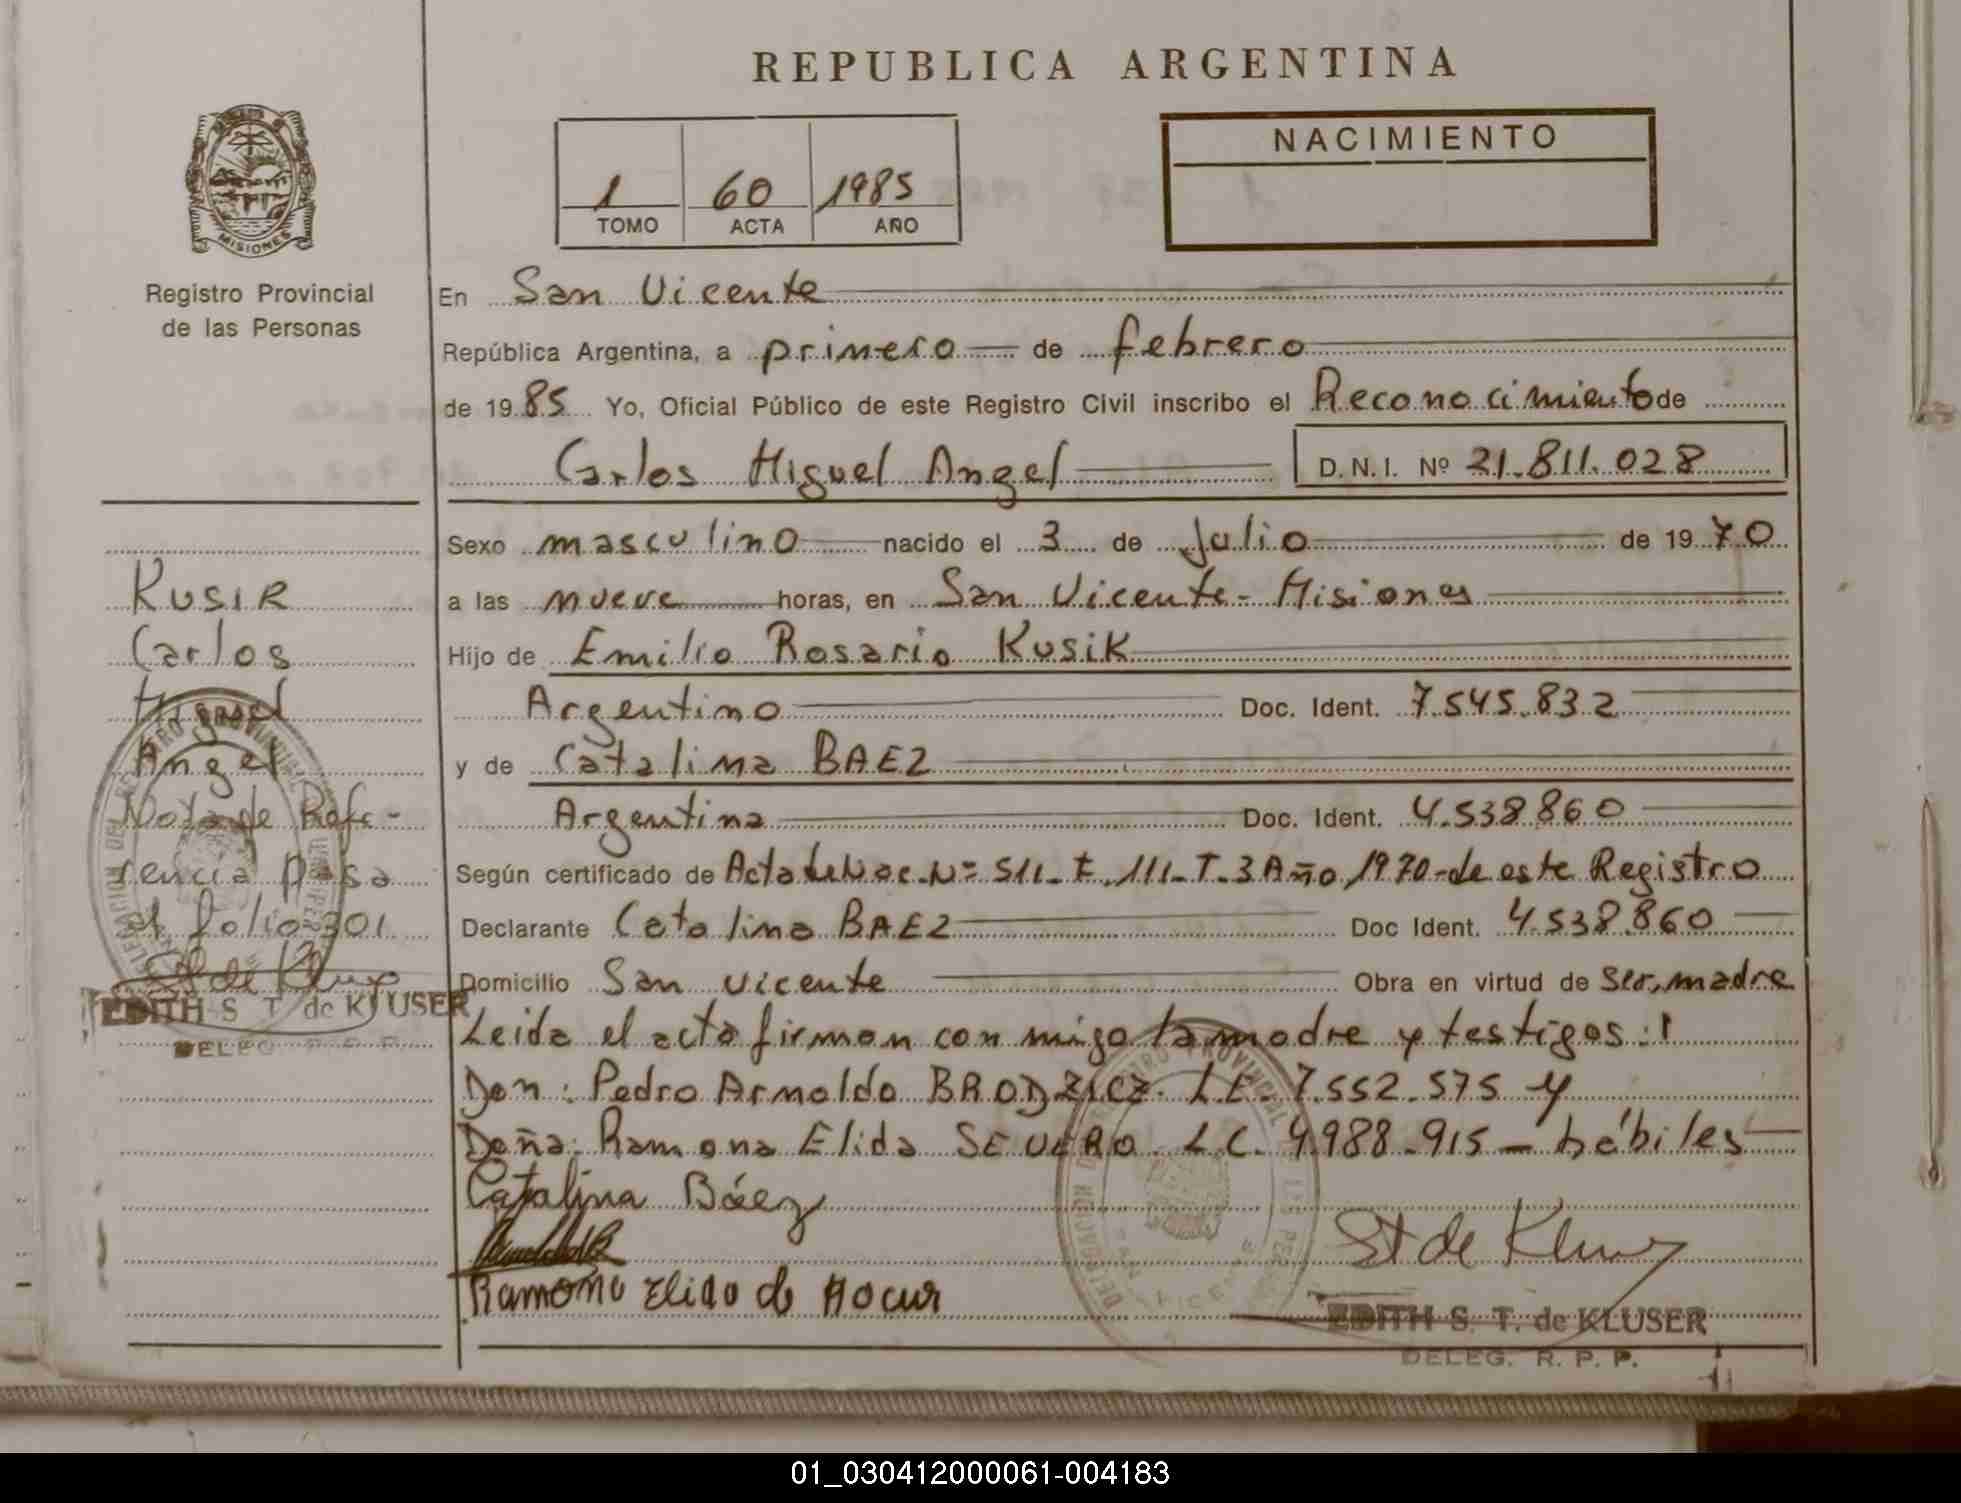 REPUBLICA ARGENTINA
NACIMIENTO
1 60 1985
TOMO ACTA AÑO
MISIONES
Registro Provincial
de las Personas
En San Vicente
República Argentina, a primero de febrero
de 1985 Yo, Oficial Público de este Registro Civil inscribo el Reconocimiento de
Carlos Miguel Angel D.N.I. Nº 21.811.028
Sexo masculino nacido el 3 de Julio de 1970
a las nueve horas, en San Vicente - Misiones
Hijo de Emilio Rosario KUSIK
Argentino Doc. Ident. 7.545.832
y de Catalina BAEZ
Argentina Doc. Ident. 4.538860
Según certificado de Acta de Nac. Nº 511- F. 111- T. 3 Año 1970- de este Registro
Declarante Catalina BAEZ Doc Ident. 4.538.860
Domicilio San Vicente Obra en virtud de Ser, madre
Leida el acta firman con migo la madre y testigos:
Don: Pedro Arnoldo BRODZICZ. L.E. 7.552.575 y
Doña: Ramona Elida SEVERO. L.C. 4.988.915 - hábiles
Catalina Báez
Ramona Elida de
St de Kluser
EDITH S. T. de KLUSER
DELEG. R. P. P.
KUSIK
Carlos
Miguel
Angel
Nota de Refe-
rencia pasa
al folio 301
St de Kluser
EDITH S T de KLUSER
DELEG R. P. P.
01_030412000061-004183